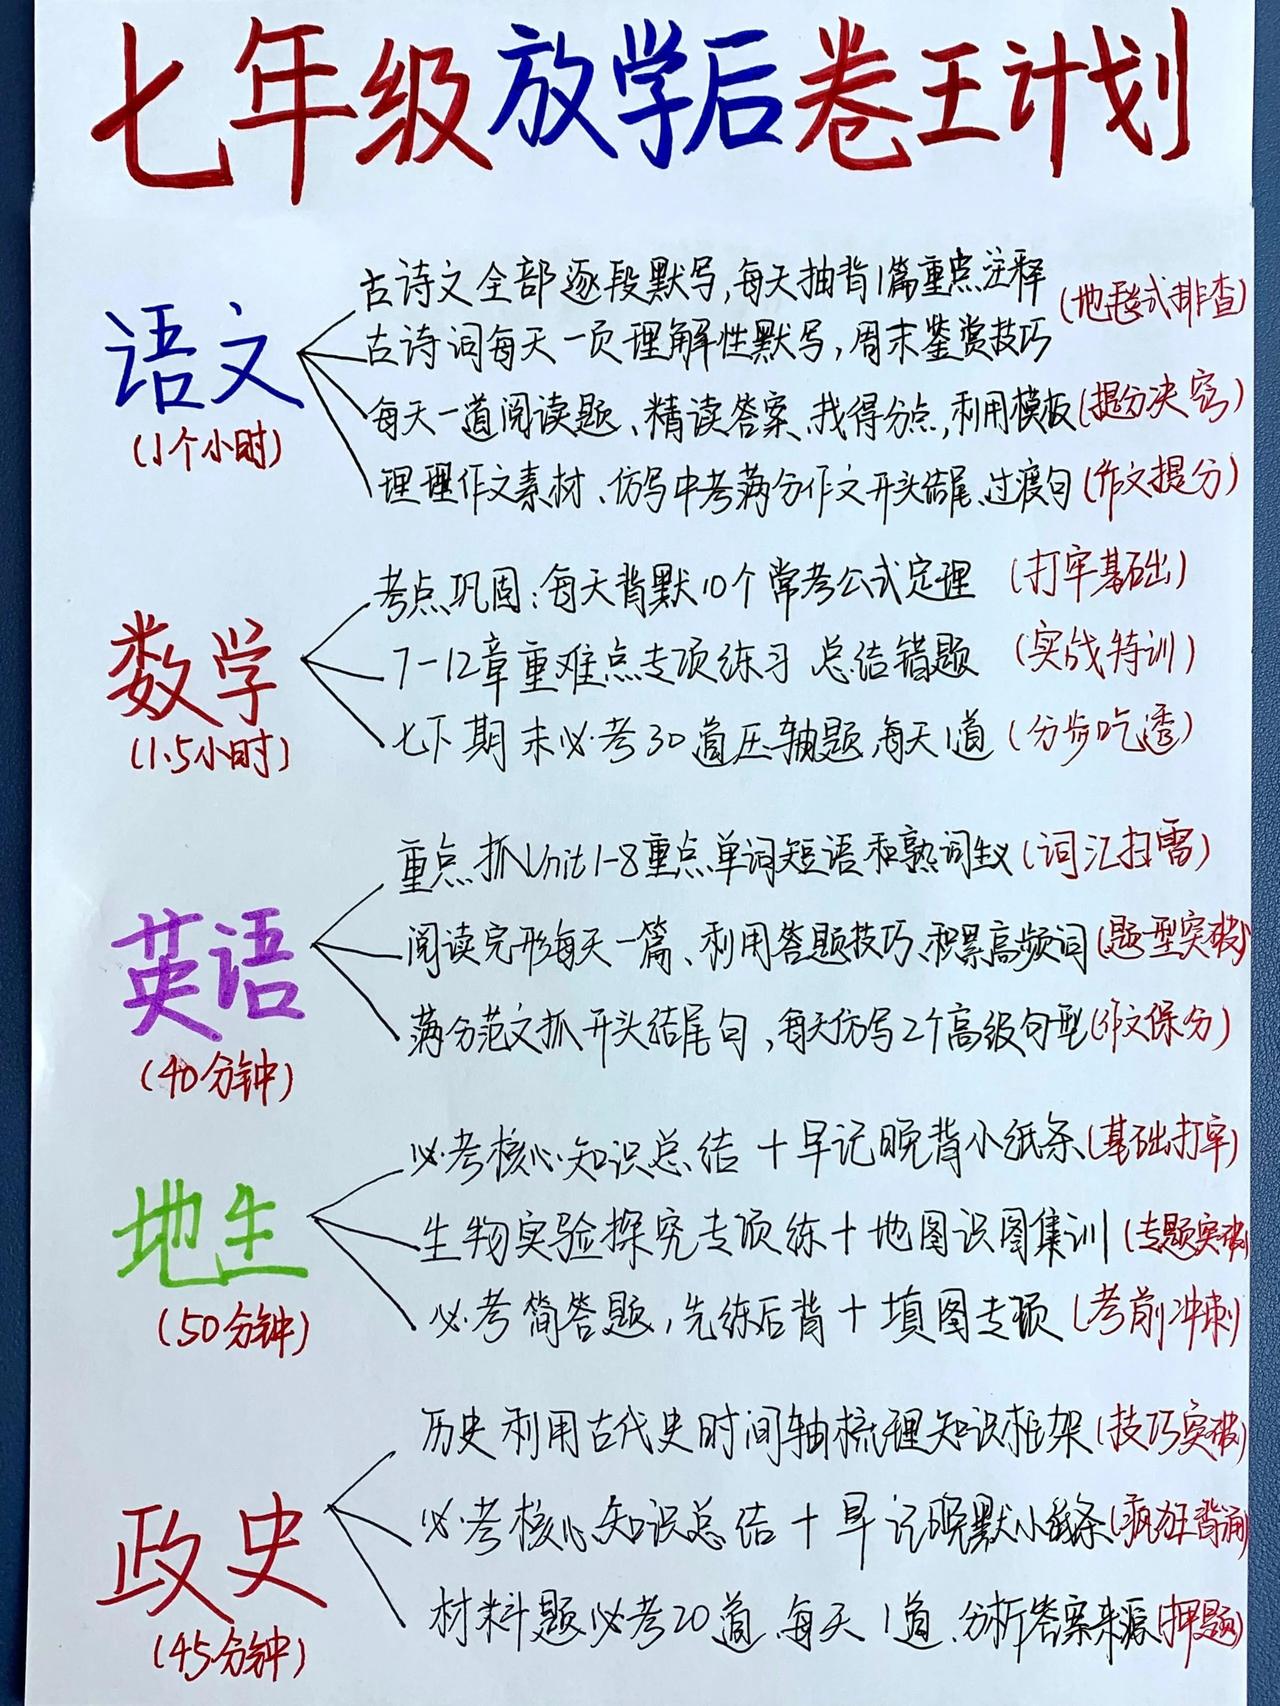 七年级放学后卷王计划
语文
(1个小时)
古诗文全部逐段默写,每天抽背1篇重点注释
古诗词每天一页理解性默写,周末鉴赏技巧
(地毯式排查)
每天一道阅读题、精读答案、找得分点,利用模板(提分决窍)
理理作文素材、仿写中考满分作文开头结尾、过渡句(作文提分)
数学
(1.5小时)
考点巩固:每天背默10个常考公式定理 (打牢基础)
7-12章重难点专项练习 总结错题 (实战特训)
七下期末必考30道压轴题,每天1道 (分步吃透)
英语
(40分钟)
重点抓Unit1-8重点单词短语和熟词生义(词汇扫雷)
阅读完形每天一篇、利用答题技巧、积累高频词(题型突破)
满分范文抓开头结尾句,每天仿写2个高级句型(作文保分)
地生
(50分钟)
必考核心知识总结+早记晚背小纸条(基础打牢)
生物实验探究专项练+地图识图集训(专题突破)
必考简答题,先练后背+填图专项(考前冲刺)
政史
(45分钟)
历史利用古代史时间轴梳理知识框架(技巧突破)
必考核心知识总结+早记晚默小纸条(疯狂背诵)
材料题必考20道、每天1道、分析答案来源(押题)